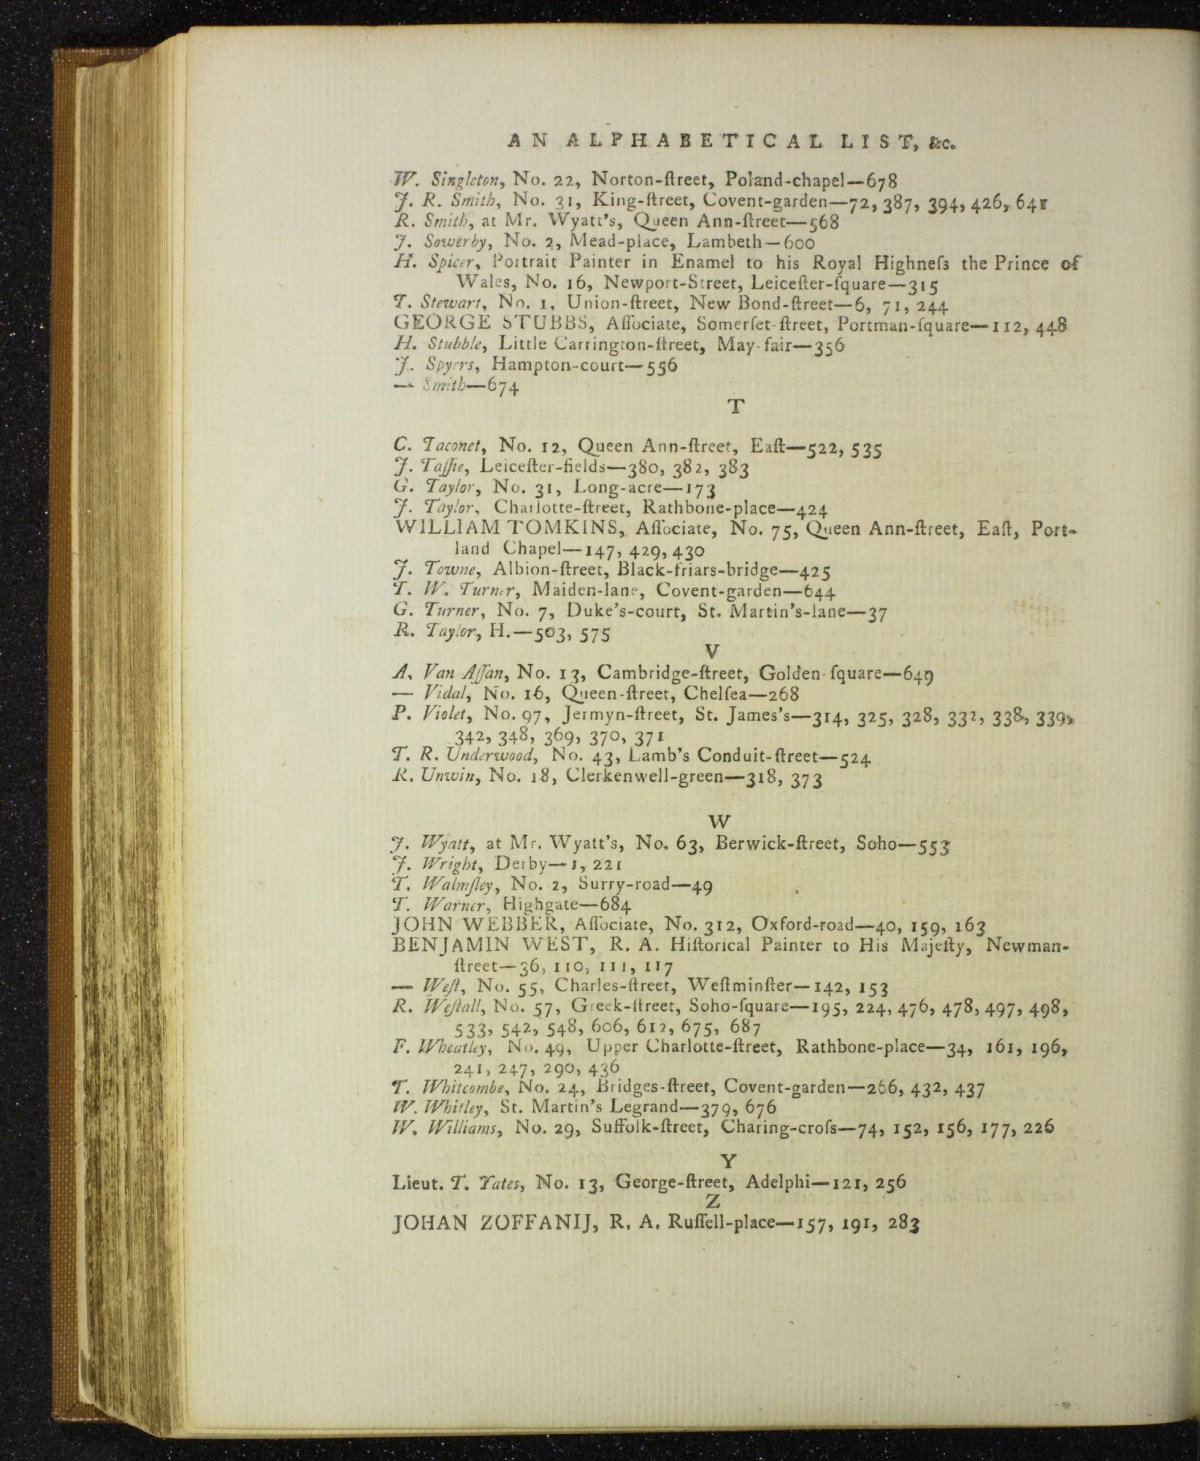 AN ALPHABETICAL LIST, &c.
W. Singleton, No. 22, Norton-ſtreet, Poland-chapel—678
J. R. Smith, No. 31, King-ſtreet, Covent-garden—72, 387, 394, 426, 641
R. Smith, at Mr. Wyatt's, Queen Ann-ſtreet—568
J. Sowerby, No. 2, Mead-place, Lambeth—600
H. Spicer, Portrait Painter in Enamel to his Royal Highneſs the Prince of
Wales, No. 16, Newport-Street, Leiceſter-ſquare—315
T. Stewart, No. 1, Union-ſtreet, New Bond-ſtreet—6, 71, 244
GEORGE STUBBS, Aſſociate, Somerſet-ſtreet, Portman-ſquare—112, 448
H. Stubble, Little Carrington-ſtreet, May-fair—356
J. Spyers, Hampton-court—556
— Smith—674
T
C. Taconet, No. 12, Queen Ann-ſtreet, Eaſt—522, 535
J. Taſſie, Leiceſter-fields—380, 382, 383
G. Taylor, No. 31, Long-acre—173
J. Taylor, Charlotte-ſtreet, Rathbone-place—424
WILLIAM TOMKINS, Aſſociate, No. 75, Queen Ann-ſtreet, Eaſt, Port-
land Chapel—147, 429, 430
J. Towne, Albion-ſtreet, Black-friars-bridge—425
T. W. Turner, Maiden-lane, Covent-garden—644
G. Turner, No. 7, Duke's-court, St. Martin's-lane—37
R. Taylor, H.—503, 575
V
A. Van Aſſan, No. 13, Cambridge-ſtreet, Golden-ſquare—649
— Vidal, No. 16, Queen-ſtreet, Chelſea—268
P. Violet, No. 97, Jermyn-ſtreet, St. James's—314, 325, 328, 332, 338, 339,
342, 348, 369, 370, 371
T. R. Underwood, No. 43, Lamb's Conduit-ſtreet—524
R. Unwin, No. 18, Clerkenwell-green—318, 373
W
J. Wyatt, at Mr. Wyatt's, No. 63, Berwick-ſtreet, Soho—553
J. Wright, Derby—1, 221
T. Walmſley, No. 2, Surry-road—49
T. Warner, Highgate—684
JOHN WEBBER, Aſſociate, No. 312, Oxford-road—40, 159, 163
BENJAMIN WEST, R. A. Hiſtorical Painter to His Majeſty, Newman-
ſtreet—36, 110, 111, 117
— Weſt, No. 55, Charles-ſtreet, Weſtminſter—142, 153
R. Weſtall, No. 57, Greek-ſtreet, Soho-ſquare—195, 224, 476, 478, 497, 498,
533, 542, 548, 606, 612, 675, 687
F. Wheatley, No. 49, Upper Charlotte-ſtreet, Rathbone-place—34, 161, 196,
241, 247, 290, 436
T. Whitcombe, No. 24, Bridges-ſtreet, Covent-garden—266, 432, 437
W. Whitley, St. Martin's Legrand—379, 676
W. Williams, No. 29, Suffolk-ſtreet, Charing-croſs—74, 152, 156, 177, 226
Y
Lieut. T. Yates, No. 13, George-ſtreet, Adelphi—121, 256
Z
JOHAN ZOFFANIJ, R. A. Ruſſell-place—157, 191, 283